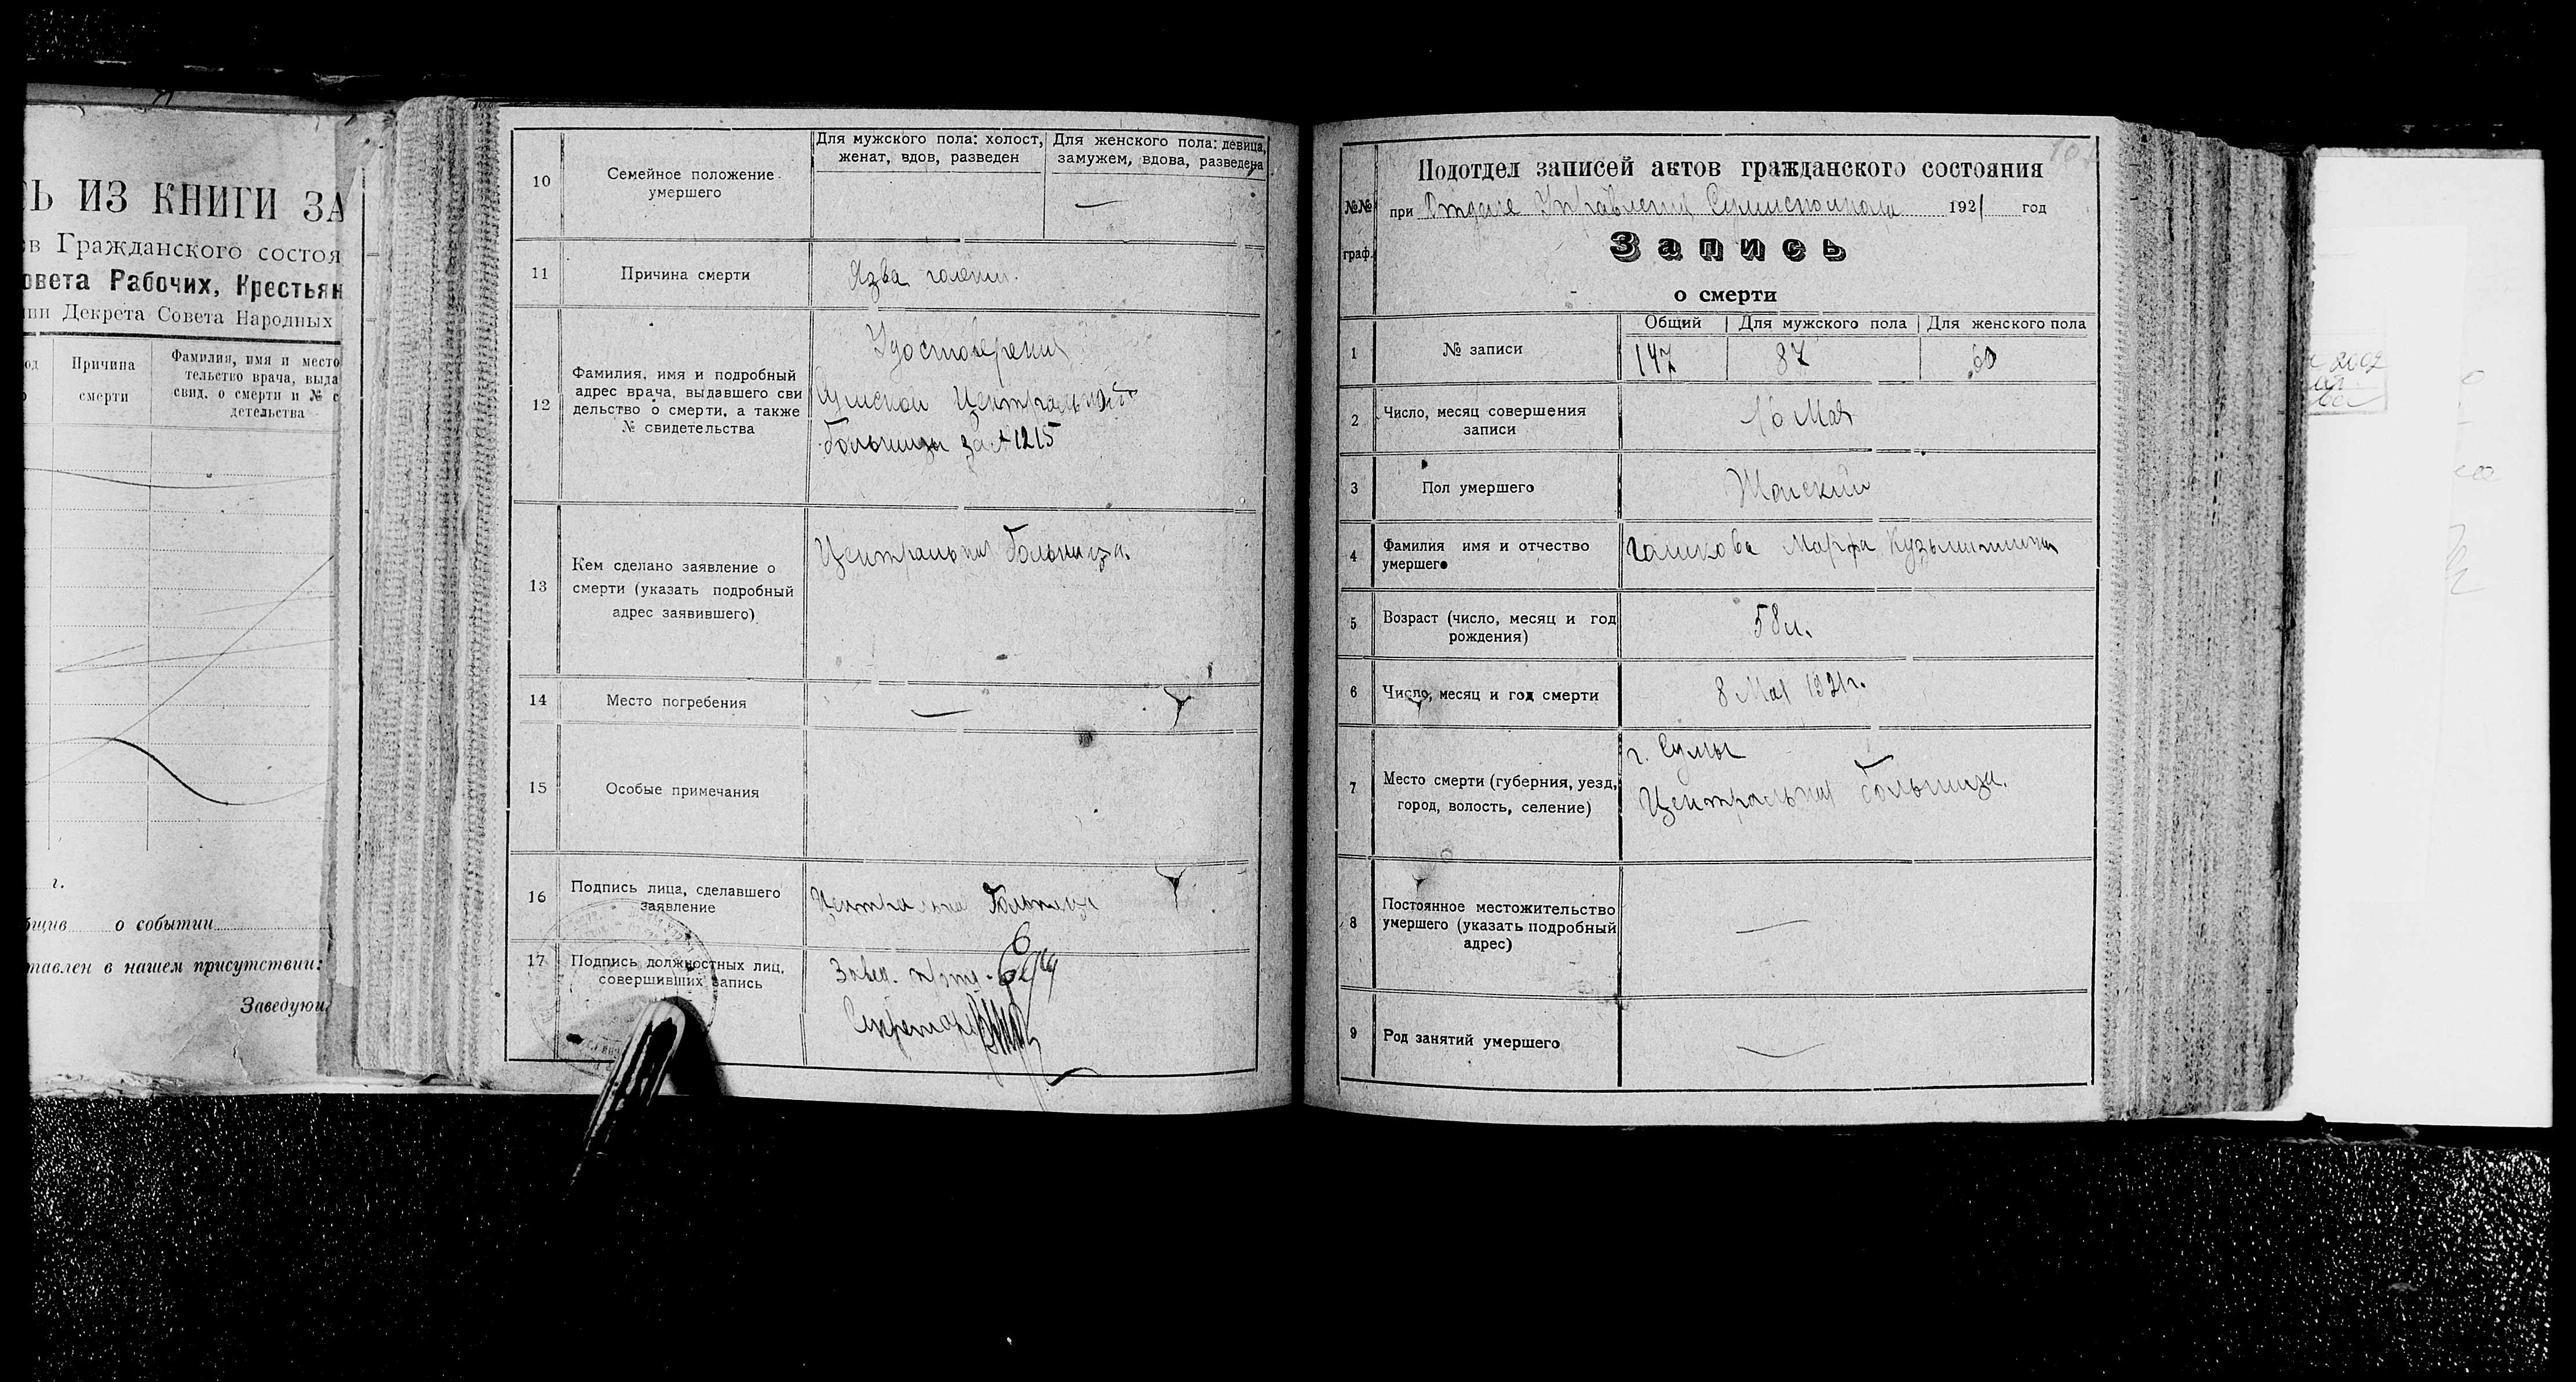 Ь ИЗ КНИГИ ЗА
ов Гражданского состоя
овета Рабочих, Крестьян
ии Декрета Совета Народных
од
Причина
смерти
Фамилия, имя и место
тельство врача, выда
свид. о смерти и № с
детельства
г.
бщив о событии
тавлен в нашем присутствии:
Заведующ
10
Семейное положение
умершего
Для мужского пола: холост,
женат, вдов, разведен
Для женского пола: девица,
замужем, вдова, разведена
—
11
Причина смерти
Язва голени.
12
Фамилия, имя и подробный
адрес врача, выдавшего сви
дельство о смерти, а также
№ свидетельства
Удостоверения
Сумской Центральной
больницы за № 1215
13
Кем сделано заявление о
смерти (указать подробный
адрес заявившего)
Центральная больница.
14
Место погребения
—
15
Особые примечания
16
Подпись лица, сделавшего
заявление
Центральная больница
17
Подпись должностных лиц,
совершивших запись
Завед.
Секретарь
№№
граф.
Подотдел записей актов гражданского состояния
при Отделе Управления Сумисполкома 1921 год
Запись
о смерти
1
№ записи
Общий
Для мужского пола
Для женского пола
147
87
60
2
Число, месяц совершения
записи
10 Мая
3
Пол умершего
Женский
4
Фамилия имя и отчество
умершего
Марфа Кузьминична
5
Возраст (число, месяц и год
рождения)
58 л.
6
Число, месяц и год смерти
8 Мая 1921 г.
7
Место смерти (губерния, уезд,
город, волость, селение)
г. Сумы
Центральная больница.
8
Постоянное местожительство
умершего (указать подробный
адрес)
—
9
Род занятий умершего
—